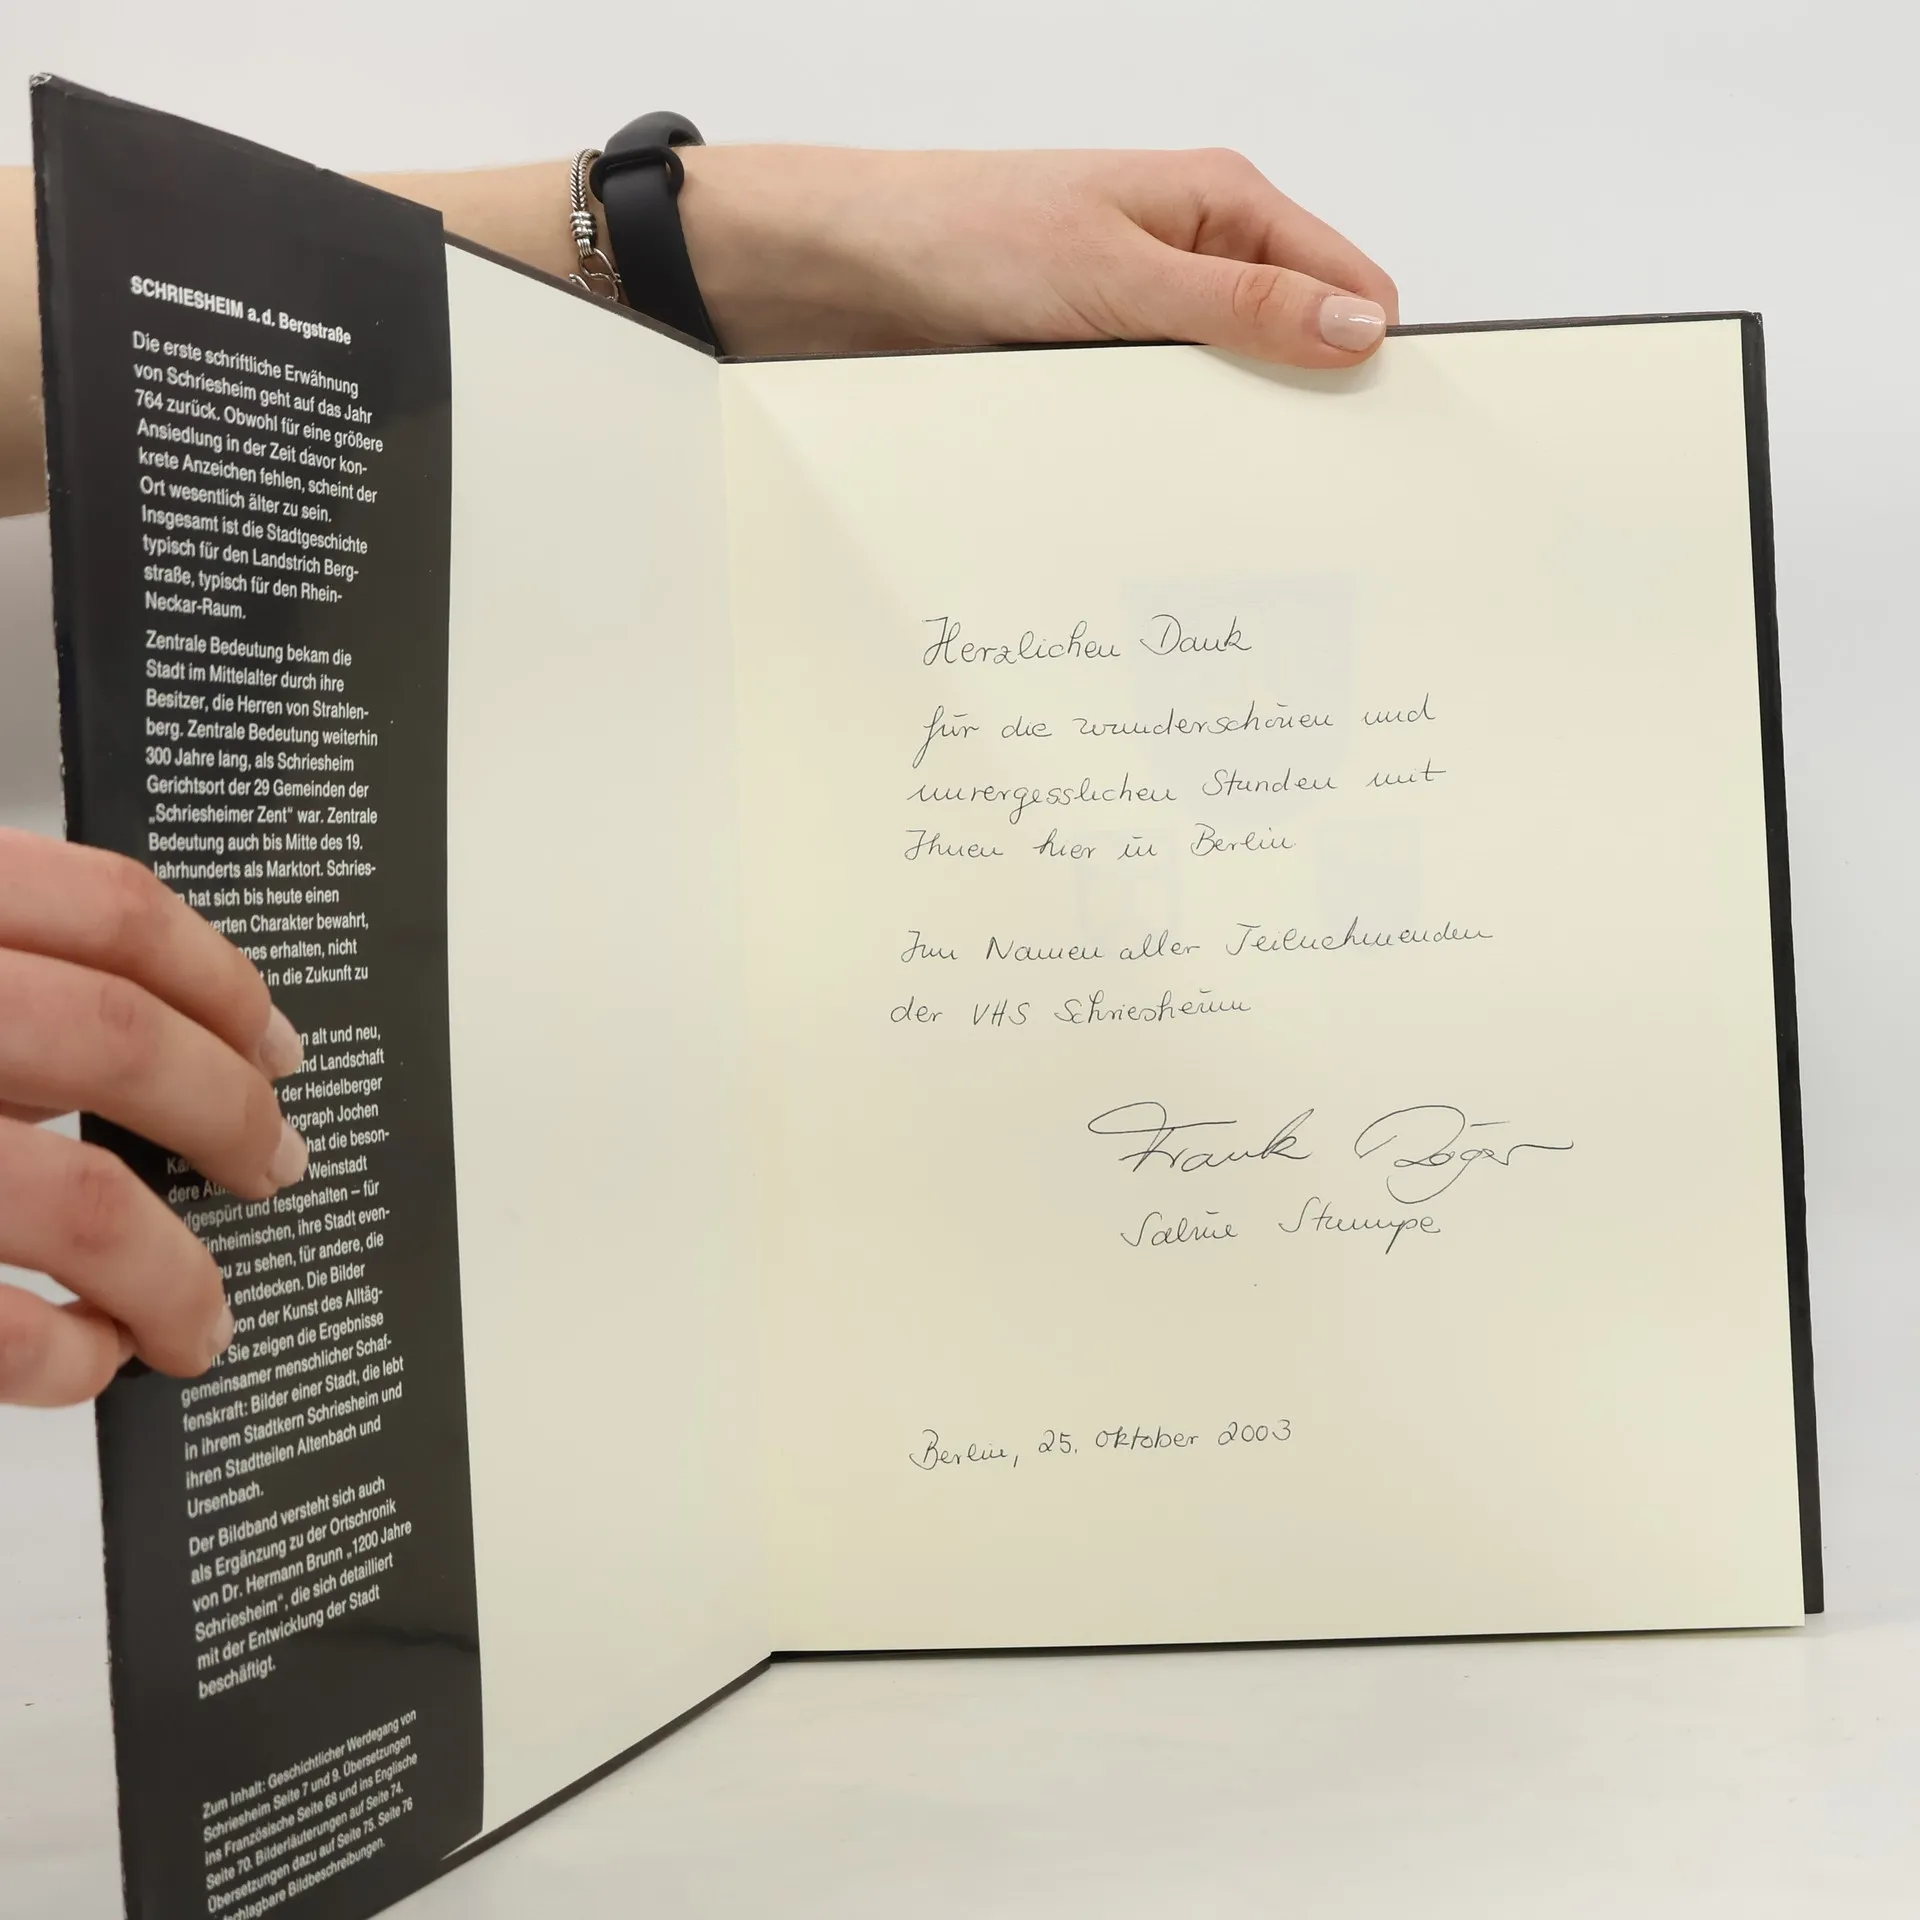 SCHRIESHEIM a. d. Bergstraße
Die erste schriftliche Erwähnung
von Schriesheim geht auf das Jahr
764 zurück. Obwohl für eine größere
Ansiedlung in der Zeit davor kon-
krete Anzeichen fehlen, scheint der
Ort wesentlich älter zu sein.
Insgesamt ist die Stadtgeschichte
typisch für den Landstrich Berg-
straße, typisch für den Rhein-
Neckar-Raum.
Zentrale Bedeutung bekam die
Stadt im Mittelalter durch ihre
Besitzer, die Herren von Strahlen-
berg. Zentrale Bedeutung weiterhin
300 Jahre lang, als Schriesheim
Gerichtsort der 29 Gemeinden der
„Schriesheimer Zent“ war. Zentrale
Bedeutung auch bis Mitte des 19.
Jahrhunderts als Marktort. Schries-
hat sich bis heute einen
Charakter bewahrt,
erhalten, nicht
in die Zukunft zu
alt und neu,
Landschaft
der Heidelberger
Jochen
hat die beson-
dere Weinstadt
und festgehalten – für
ihre Stadt even-
zu sehen, für andere, die
entdecken. Die Bilder
von der Kunst des Alltäg-
Sie zeigen die Ergebnisse
gemeinsamer menschlicher Schaf-
fenskraft: Bilder einer Stadt, die lebt
in ihrem Stadtkern Schriesheim und
ihren Stadtteilen Altenbach und
Ursenbach.
Der Bildband versteht sich auch
als Ergänzung zu der Ortschronik
von Dr. Hermann Brunn „1200 Jahre
Schriesheim“, die sich detailliert
mit der Entwicklung der Stadt
beschäftigt.
Zum Inhalt: Geschichtlicher Werdegang von
Schriesheim Seite 7 und 9. Übersetzungen
ins Französische Seite 68 und ins Englische
Seite 70. Bilderläuterungen auf Seite 74.
Übersetzungen dazu auf Seite 75. Seite 76
Bildbeschreibungen.
Herzlichen Dank
für die wunderschönen und
unvergesslichen Stunden mit
Ihnen hier in Berlin.
Im Namen aller Teilnehmenden
der VHS Schriesheim
Frank Röger
Sabine Stumpe
Berlin, 25. Oktober 2003